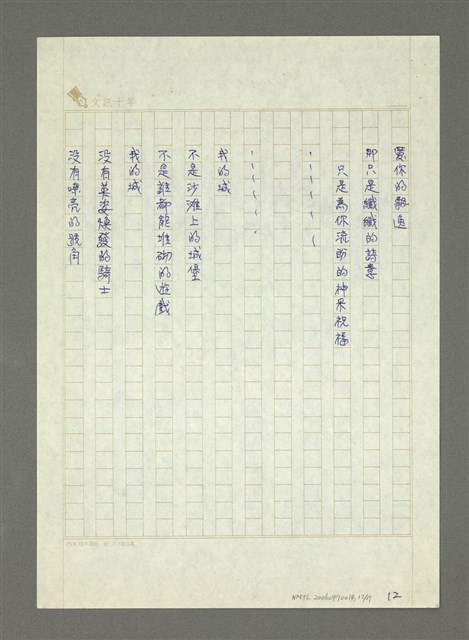 文訊十年
愛你的鍛造
那只是纖纖的詩意
只是為你流盼的神采祝福
、、、、、、
、、、、、、
我的城
不是沙灘上的城堡
不是誰都能堆砌的遊戲
我的城
沒有英姿煥發的騎士
沒有嘹亮的號角
NMTL 20060970018, 12/19
12